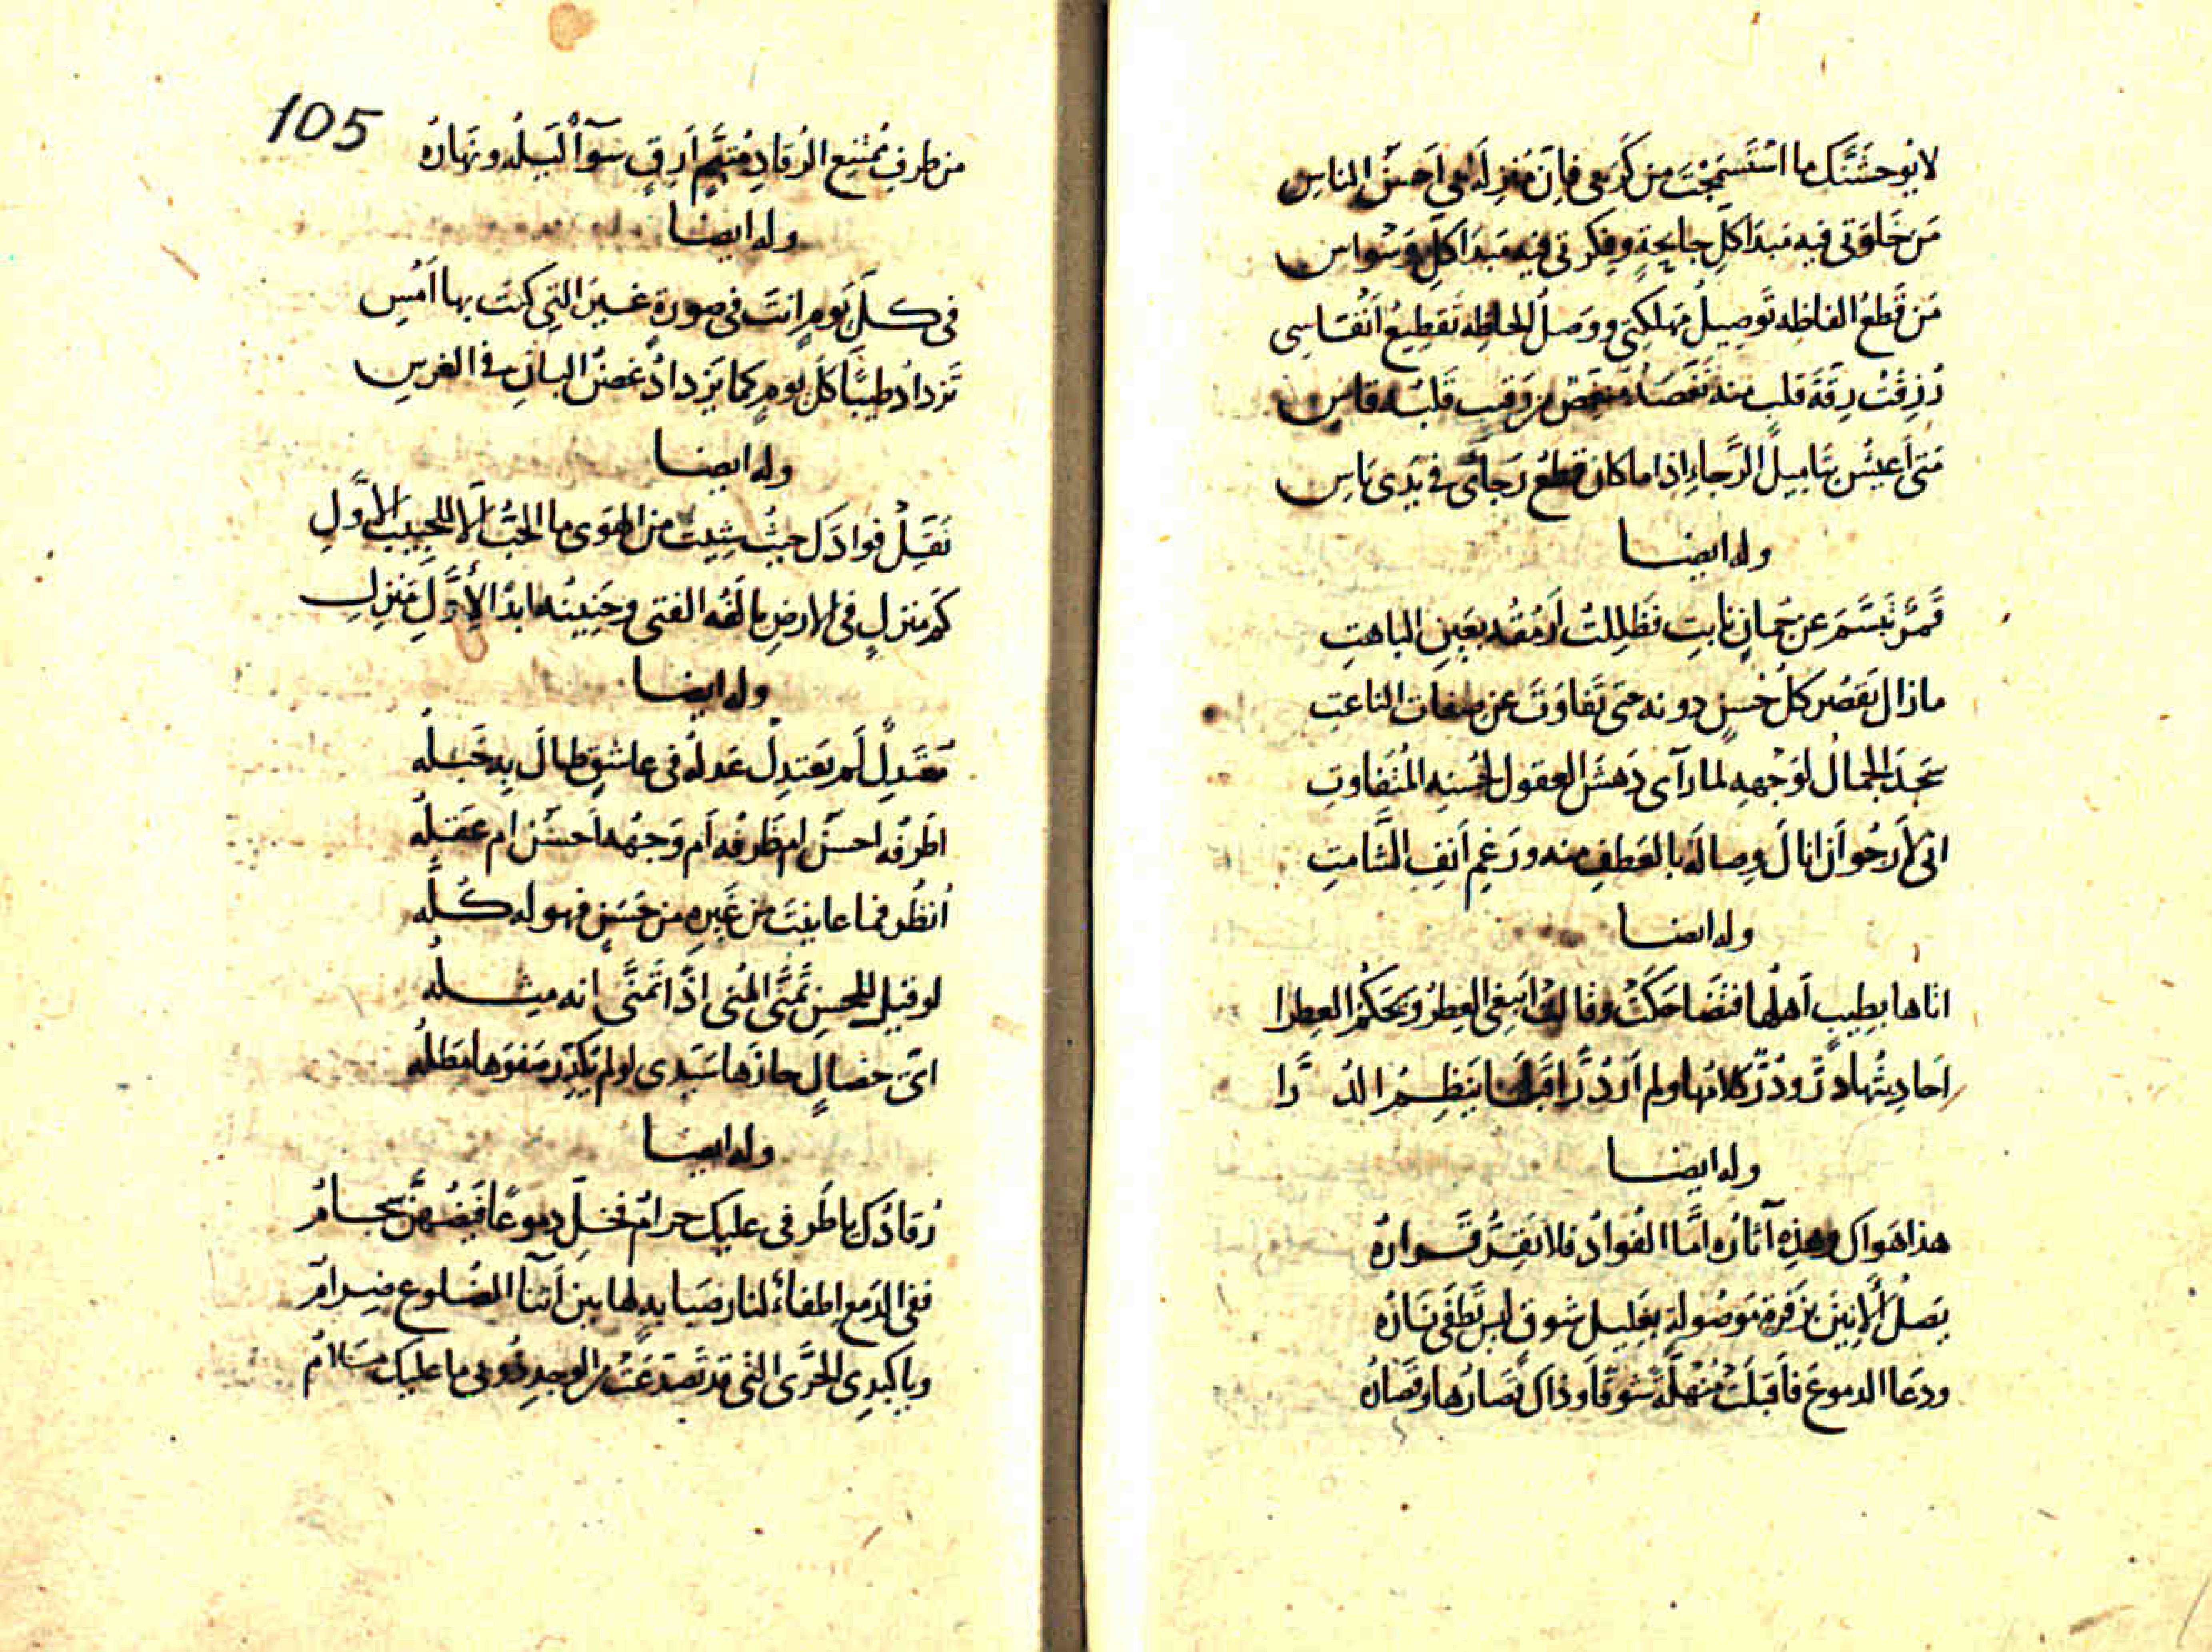 لا يُوحشَنَّك ما اسْتَسمَجْتَ من كَربي فإنَّ مُنزلَه بي أحسنُ الناسِ
مَن خَلوَتي فيه مَبدَا كلِّ جايحةٍ وفِكرتي فيه مَبدَا كلِّ وَسْواسِ
مَن قَطعُ الفاظِه تَوصيلُ مَهلكتي ووَصلُ الحاظِه تَقطيعُ انْفَاسِي
رُزِقْتُ رِقَّةَ قلبٍ منه نَغَّصَها مُنغِّصٌ من رَقيبٍ قَلبُه قاسِ
مَتى أعيشُ بتَاميلِ الرَّجاءِ اذا ما كان قطعُ رَجَائي في يَدَي يَاسِ
وله ايضا
قَمَرٌ تَبَسَّمَ عن جُمانٍ نابتِ فظَلِلتُ أرمُقُه بعَينِ الباهتِ
مازال يَقصُر كلُّ حُسنٍ دونه حتى تَفاوَتَ عن صفات الناعتِ
سَجَدَ الجمالُ لوَجهِهِ لما رآى دَهشَ العقول لحُسنِهِ المتَفاوتِ
انى لأرجُو أن انالَ وِصالَهُ بالعَطفِ منه ورَغمِ أنفِ الشَّامتِ
وله ايضا
اتاها بِطيبٍ أهلُها فتَضَاحَكَتْ وقالتْ أيبغى العِطرُ ويحَكمُ العِطرا
احَاديثُها دُرٌّ ودُرٌّ كلامُها ولم أر دُرًّا قبلها ينَظِمُ الدُرَّا
وله ايضا
هذا هَواك وهذِه آثارُه امَّا الفُوادُ فلا يَقِرُّ قَرارُه
يَصلُ الأنينَ بزَفرةٍ مَوصُولةٍ بغَليلِ شوقٍ ليس تُطفَى نَارُه
ودعَا الدموعَ فأقبَلَتْ مُنهلَّةً شوقًا وذاك قُصَارُها وقصَارُه
105
من طرفِ مُمتنعِ الرُقادِ مُتيَّمٍ أرِقٍ سَوآءٌ لَيلُه ونهَارُه
وله ايضا
فى كلِّ يَومٍ انتَ فى صورةٍ غيرَ التي كنتَ بها أمسِ
تَزدادُ طيبًا كلَّ يومٍ كما يَزدادُ غصنُ البانِ في الغرسِ
وله ايضا
نَقِّلْ فوادَك حيثُ شِيتَ من الهَوى ما الحبُّ الّا للحبيبِ الأوَّلِ
كم منزلٍ فى الارضِ يالَفُه الفتى وحَنينُه ابدًا لأوَّلِ مَنزِلِ
وله ايضا
مُعتَدِلٌ لَم يَعتدِلْ عَدلُهُ فى عاشقٍ طالَ بِهِ خَبلُه
اطَرفُه احسنُ ام ظَرفُه أم وَجهُه احسَنُ ام عَقلُه
اُنظُر فما عاينتَ من غَيرِه من حَسَنٍ فهو له كُلُّه
لو قيل للحسنِ تَمنَّى المُنى إذًا تَمَنَّى انه مِثلُه
ائُّ خصالٍ حازَها سَيّدى لو لم يُكدِّر صَفوَها مَطلُه
وله ايضا
رُقادُك يا طَرفى عليك حرامٌ فخلِّ دموعًا فَيضُهُنَّ سجامُ
ففى الدَمعِ اطفاءٌ لنار صَبابةٍ لها بين أثناءِ الضُلوعِ ضِرامُ
ويا كَبِدِى الحَرَّى التى قد تَصَدَّعَتْ من الوجدِ ذُوبي ما عليك مَلامُ